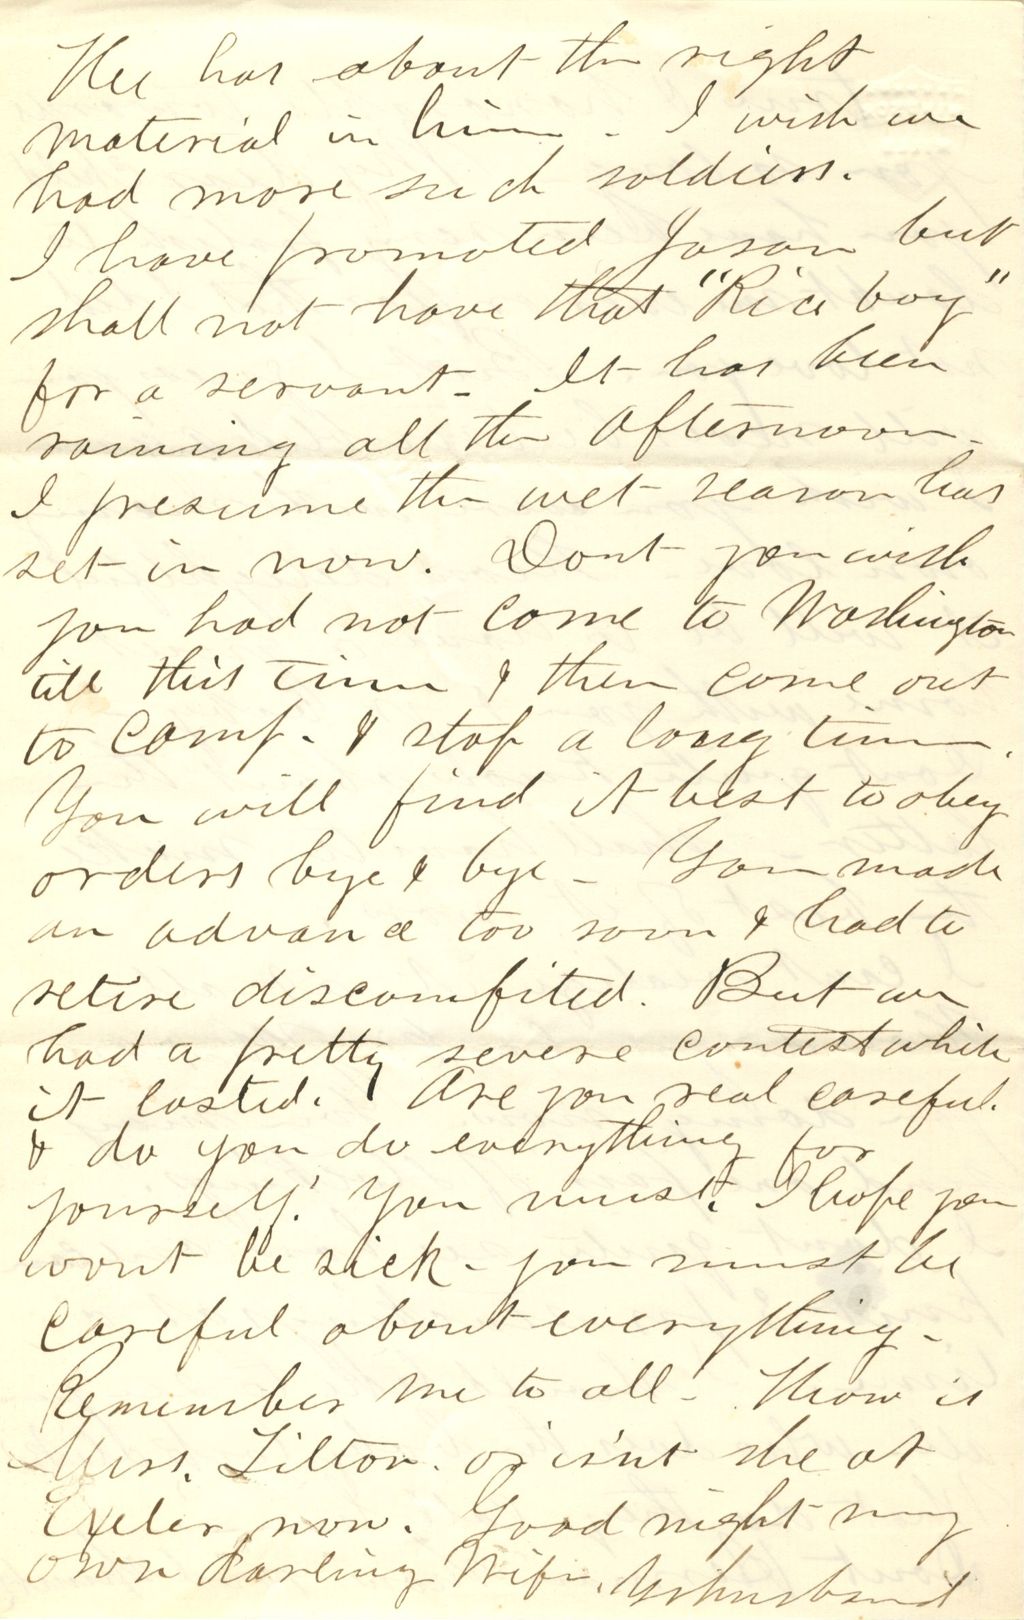 He has about the right
material in him - I wish we
had more such soldiers.
I have promoted Jason but
shall not have that "Rice boy"
for a servant - It has been
raining all the afternoon -
I presume the wet season has
set in now. Dont you wish
you had not come to Washington
till this time & then come out
to camp - & stop a long time.
You will find it best to obey
orders bye & bye - You made
an advance too soon & had to
retire discomfited. But we
had a pretty severe contest while
it lasted. Are you real careful.
& do you do everything for
yourself! You must. I hope you
wont be sick - you must be
careful about everything -
Remember me to all - How is
Mrs. Tilton. or is'nt she at
Exeter now. Good night my
own darling Wife. Yr husband